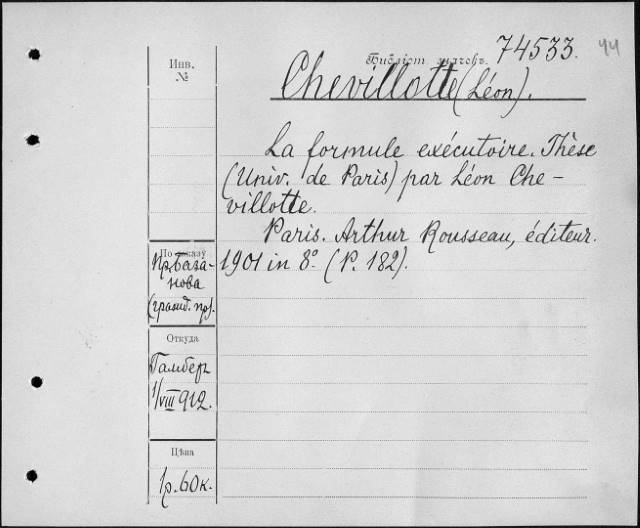 74533.
44
Инв.
№
Chevillotte (Léon).
La formule exécutoire. Thèse
(Univ. de Paris) par Léon Che-
villotte.
Paris. Arthur Rousseau, éditeur.
1901 in 8º (P. 182).
По заказу
Пр. База-
нова
(гражд. пр).
Откуда
Гамберъ
1/VIII 912.
Цѣна
1р. 60к.